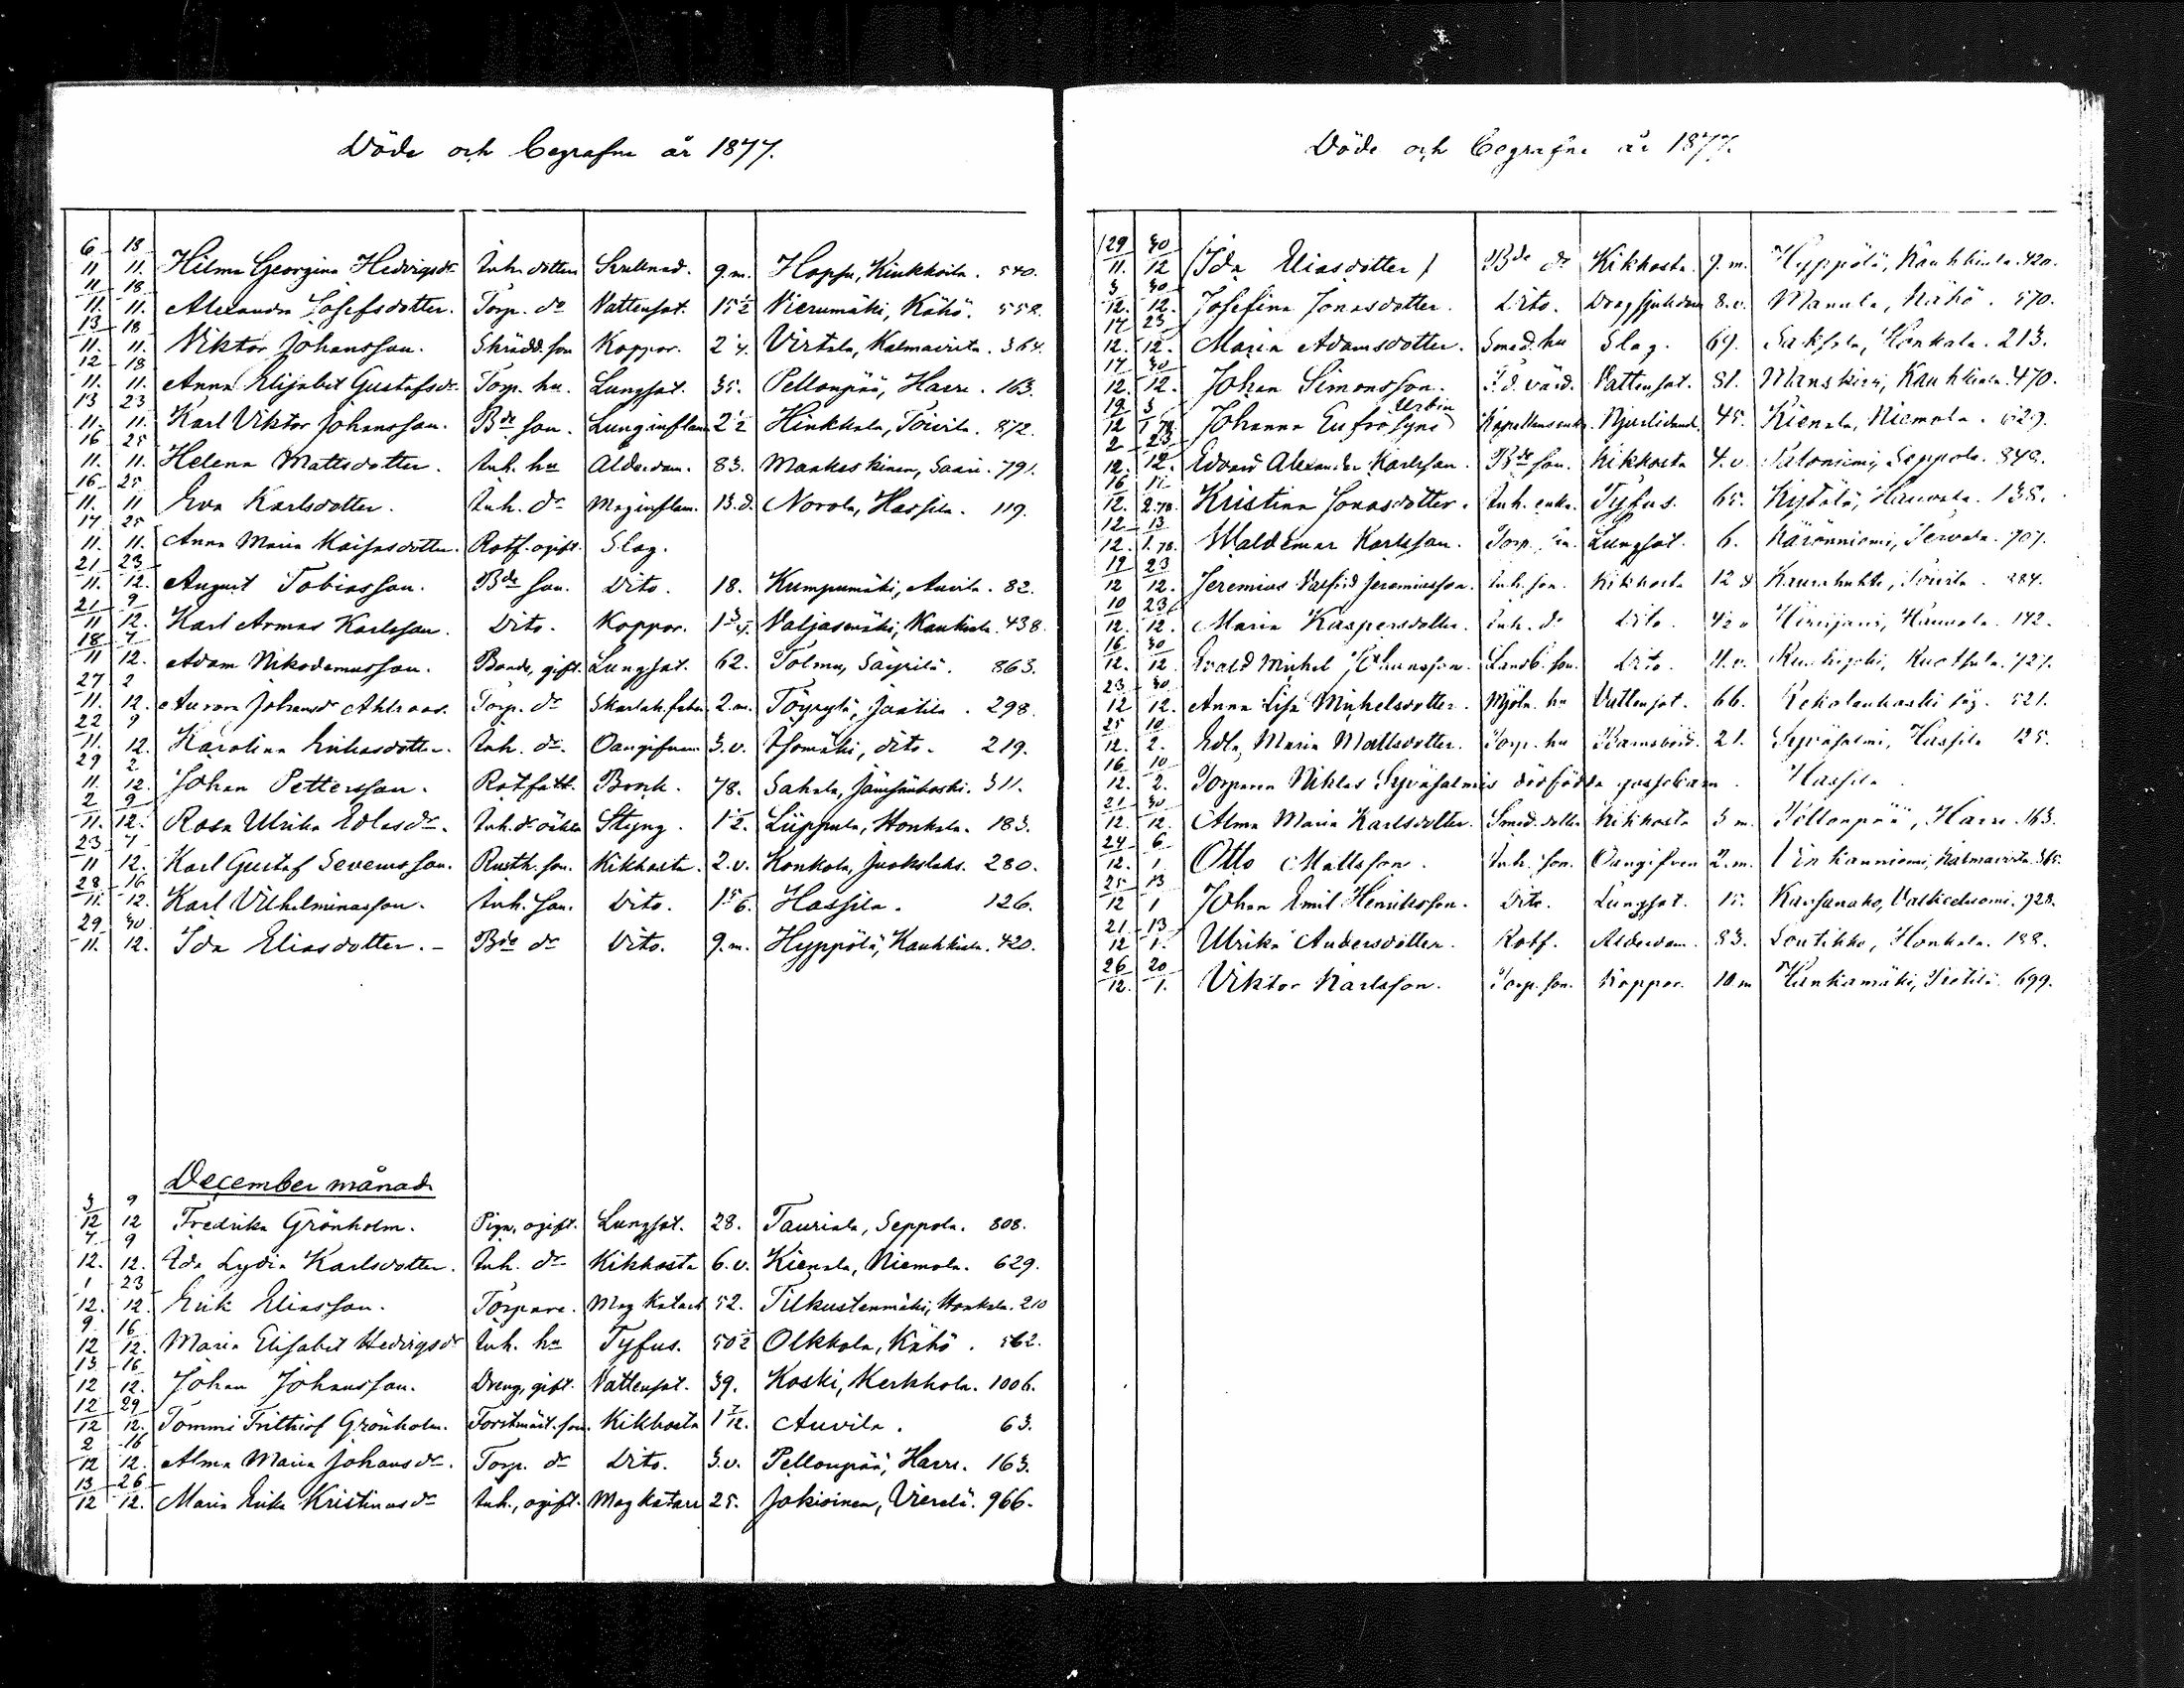 Döde och begrafne år 1877.
6/11 18/11. Hilma Georgina Hedvigsdr Inh. dotter 9.m. Hopsu, Kinkkoila. 540.
11/11. 18/11. Alexandra Josefsdotter. Torp. dr Vattensot. 15 1/2 Vierumäki, Kähö. 558.
13/11. 18/11. Viktor Johansson. Skrädd. son Koppor. 2 1/4. Virtala, Kalmavirta. 364.
12/11. 18/11. Anna Elisabet Gustafsdr. Torp. hu. Lungsot. 35. Pellonpää, Harre. 163.
13/11. 23/11. Karl Viktor Johansson. Bde son. Lunginflam 2 1/2 Hinkkala, Toivila. 872.
16/11. 25/11. Helena Mattsdotter. Inh. hu Ålderdom. 83. Maakeskinen, Saari. 791.
16/11. 25/11 Eva Karlsdotter. Inh. dr Maginflam. 13.d. Norola, Hassila. 119.
17/11. 25/11. Anna Maria Kaisasdotter. Rotf. ogift. Slag.
21/11. 23/12. August Tobiasson. Bde son. Dito. 18. Kumpumäki, Auvila. 82.
21/11 9/12. Karl Armas Karlsson. Dito. Koppor. 1 3/4. Valjasmäki, Kaukiala. 438.
18/11 7/12. Adam Nikodemusson. Bonde, gift. Lungsot. 62. Tolmu, Säyrilä. 863.
27/11. 2/12. Aurora Johansdr Ahlroos. Torp. dr Skarlak.feber 2.m. Töyrylä, Jaatila. 298.
22/11. 9/12. Karolina Erikasdotter. Inh. dr. Oangifven 3.v. Isomäki, dito. 219.
29/11. 2/12. Johan Pettersson. Rotfatt. Brock. 78. Sahala, Jämsänkoski. 311.
2/11. 9/12. Rosa Ulrika Edlasdr. Inh. dr oäkta Styng. 1 1/2. Lüppula, Honkala. 183.
23/11 7/12. Karl Gustaf Severusson. Rusth. son. Kikhosta. 2.v. Konkola, Juokslaks. 280.
28/11. 16/12. Karl Vilhelminasson. Inh. son. Dito. 1 5/6. Hassila. 126.
29/11. 30/12. Ida Eliasdotter. - Bde dr Dito. 9.m. Hyppölä, Kaukkiala. 420.
December månad
3/12 9/12 Fredrika Grönholm. Piga, ogift. Lungsot. 28. Tauriala, Seppola. 808.
7/12. 9/12. Ida Lydia Karlsdotter. Inh. dr Kikhosta 6.v. Kienala, Niemola. 629.
1/12. 23/12. Erik Eliasson. Torpare. Mag Katarr 52. Tilkustenmäki, Honkala. 210
9/12 16/12. Maria Elisabet Hedvigsdr Inh. hu Tyfus. 50 1/2 Olkkola, Kähö. 562.
13/12 16/12. Johan Johansson. Dreng, gift. Vattensot. 39. Koski, Kerkkola. 1006.
12/12 29/12. Tommi Frithiof Grönholm. Forstmäst. son. Kikhosta 1 7/12. Auvila. 63.
2/12 16/12. Alma Maria Johansdr. Torp. dr Dito. 3.v. Pellonpää, Harre. 163.
13/12 26/12. Maria Erika Kristinasdr Inh., ogift. Mag katarr 25. Jokioinen, Vierelä. 966.
Döde och begrafne år 1877.
(29/11. 30/12 (Ida Eliasdotter) Bde dr Kikhosta. 9.m. Hyppölä, Kaukkiala. 420.
3/12. 30/12. Josefina Jonasdotter. Dito. Dragsjukdom 8.v. Mannila, Kähö. 570.
17/12. 23/12. Maria Adamsdotter. Smed. hu Slag. 69. Saksala, Honkala. 213.
17/12. 30/12. Johan Simonsson. F.d. värd. Vattensot. 81. Manskivi, Kaukkiala. 470.
19/12 3/1 78. Johanna Eufrosyne Urbin Kapellansenka. Njurlidand. 45. Kienala, Niemola. 629.
2/12. 23/12. Edvard Alexander Karlsson. Bde son. Kikhosta 4.v. Saloniemi, Seppola. 848.
16/12. 2.78. Kristina Jonasdotter. Inh. enka. Tyfus. 65. Kytälä, Hauvala. 138.
12/12. 13/1.78. Waldemar Karlsson. Torp. son. Lungsot. 6. Käränniemi, Tervala. 707.
19/12 23/12. Jeremias Valfrid Jeremiasson. Inh. son. Kikhosta 12 d Toivila. 884.
10/12. 23/12. Maria Kaspersdotter. Inh. dr Dito. 4 1/2 Hirvijärvi, Hauvala. 142.
16/12. 30/12. Evald Mikael Johansson. Landb. son. Dito. 11.v. Ruotsula. 727.
23/12 30/12. Anna Lisa Mickelsdotter. Mjöln. hu Vattensot. 66. Rekolankoski såg. 521.
25/12. 10/2. Edla Maria Mattsdotter. Torp. hu Barnsbörd. 21. Syväsalmi, Hassila 125.
16/12. 10/2. Torparen Niklas Syväsalmis dödfödda gossebarn. Hassila
21/12. 30/12. Alma Maria Karlsdotter. Smed. dotter Kikhosta 3 m. Pellonpää, Harre. 163.
24/12. 6/1 Otto Mattsson. Inh. son. Oangifven 2.m. Kalmavirta. 365.
25/12 13/1 Johan Emil Henriksson. Dito. Lungsot. 15. Kansanaho, Valkeeluomi. 928.
21/12 13/1. Ulrika Andersdotter. Rotf. Ålderdom. 83. Soutikko, Honkala. 188.
26/12. 20/1. Viktor Karlsson. Torp. son. Koppor. 10.m Kankamäki, 699.